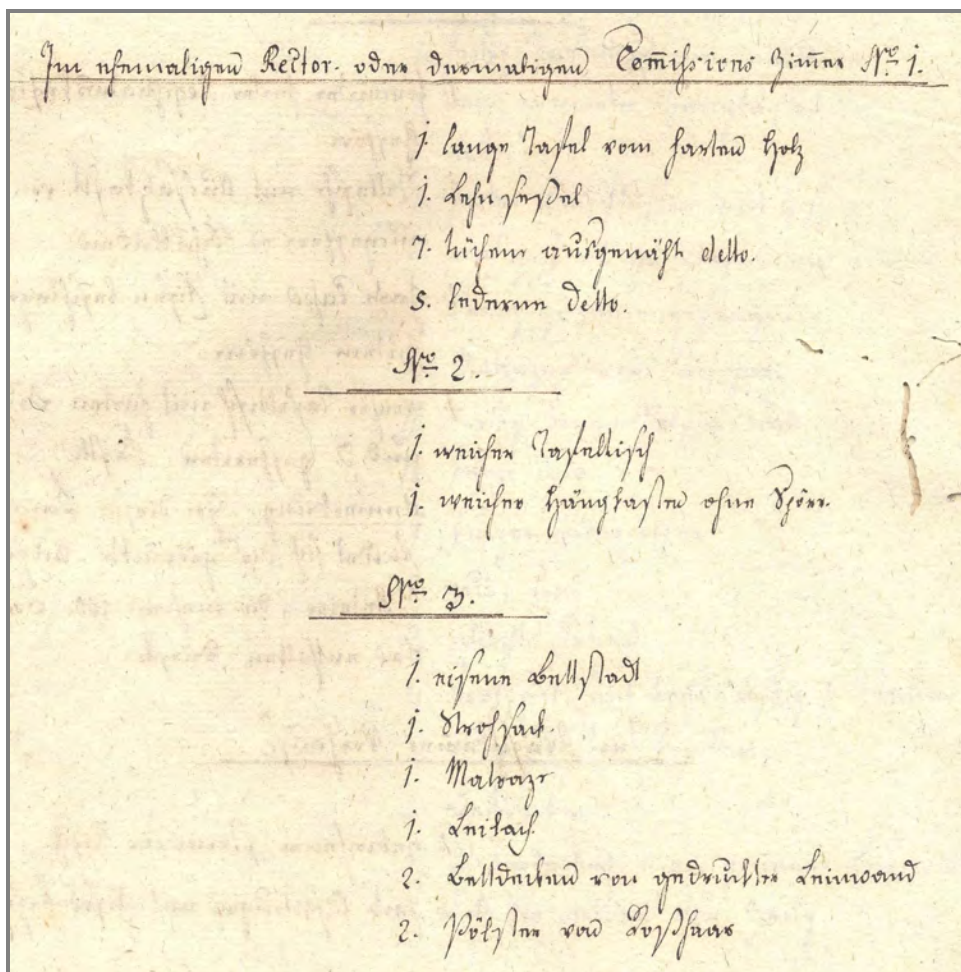 Im ehemaligen Rector- oder dermaligen Com̄issions Zim̄er No 1.
1. lange Tafel vom harten Holz
1. Lehnseßel
7. tüchene ausgenäht detto.
5. lederne detto.
No 2.
1. weicher Tafeltisch
1. weicher Hängkasten ohne Spörr.
No 3.
1. eisene Bettstadt
1. Strohsack.
1. Matraze
1. Leilach.
2. Bettdecken von gedruckter Leinwand
2. Pölster von Roßhaar